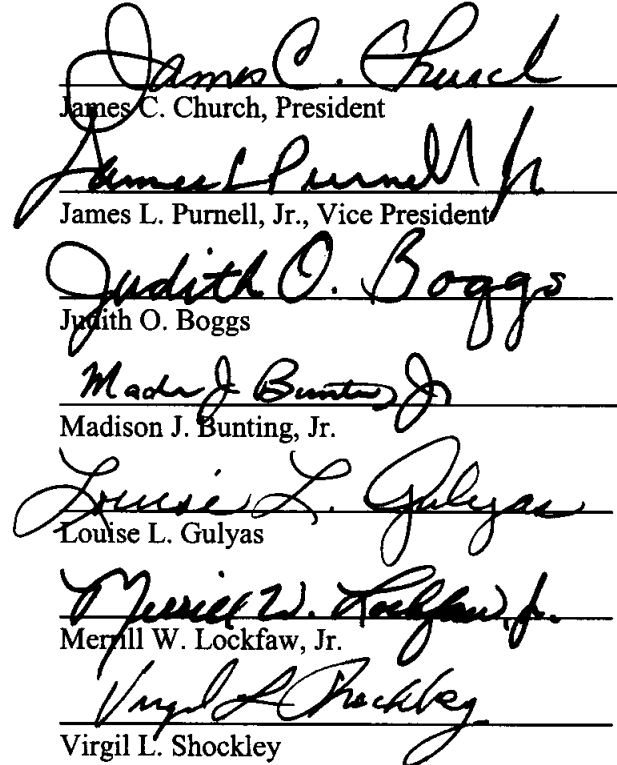 James C. Church
James C. Church, President
James L Purnell Jr.
James L. Purnell, Jr., Vice President
Judith O. Boggs
Judith O. Boggs
Madison J. Bunting, Jr.
Louise L. Gulyas
Louise L. Gulyas
Merrill W. Lockfaw, Jr.
Merrill W. Lockfaw, Jr.
Virgil L Shockley
Virgil L. Shockley